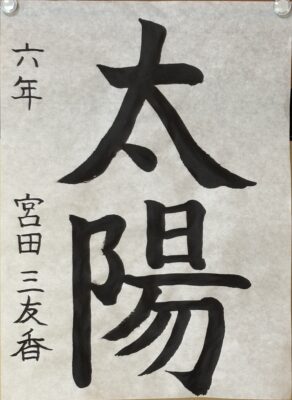 太陽
六年 宮田三友香